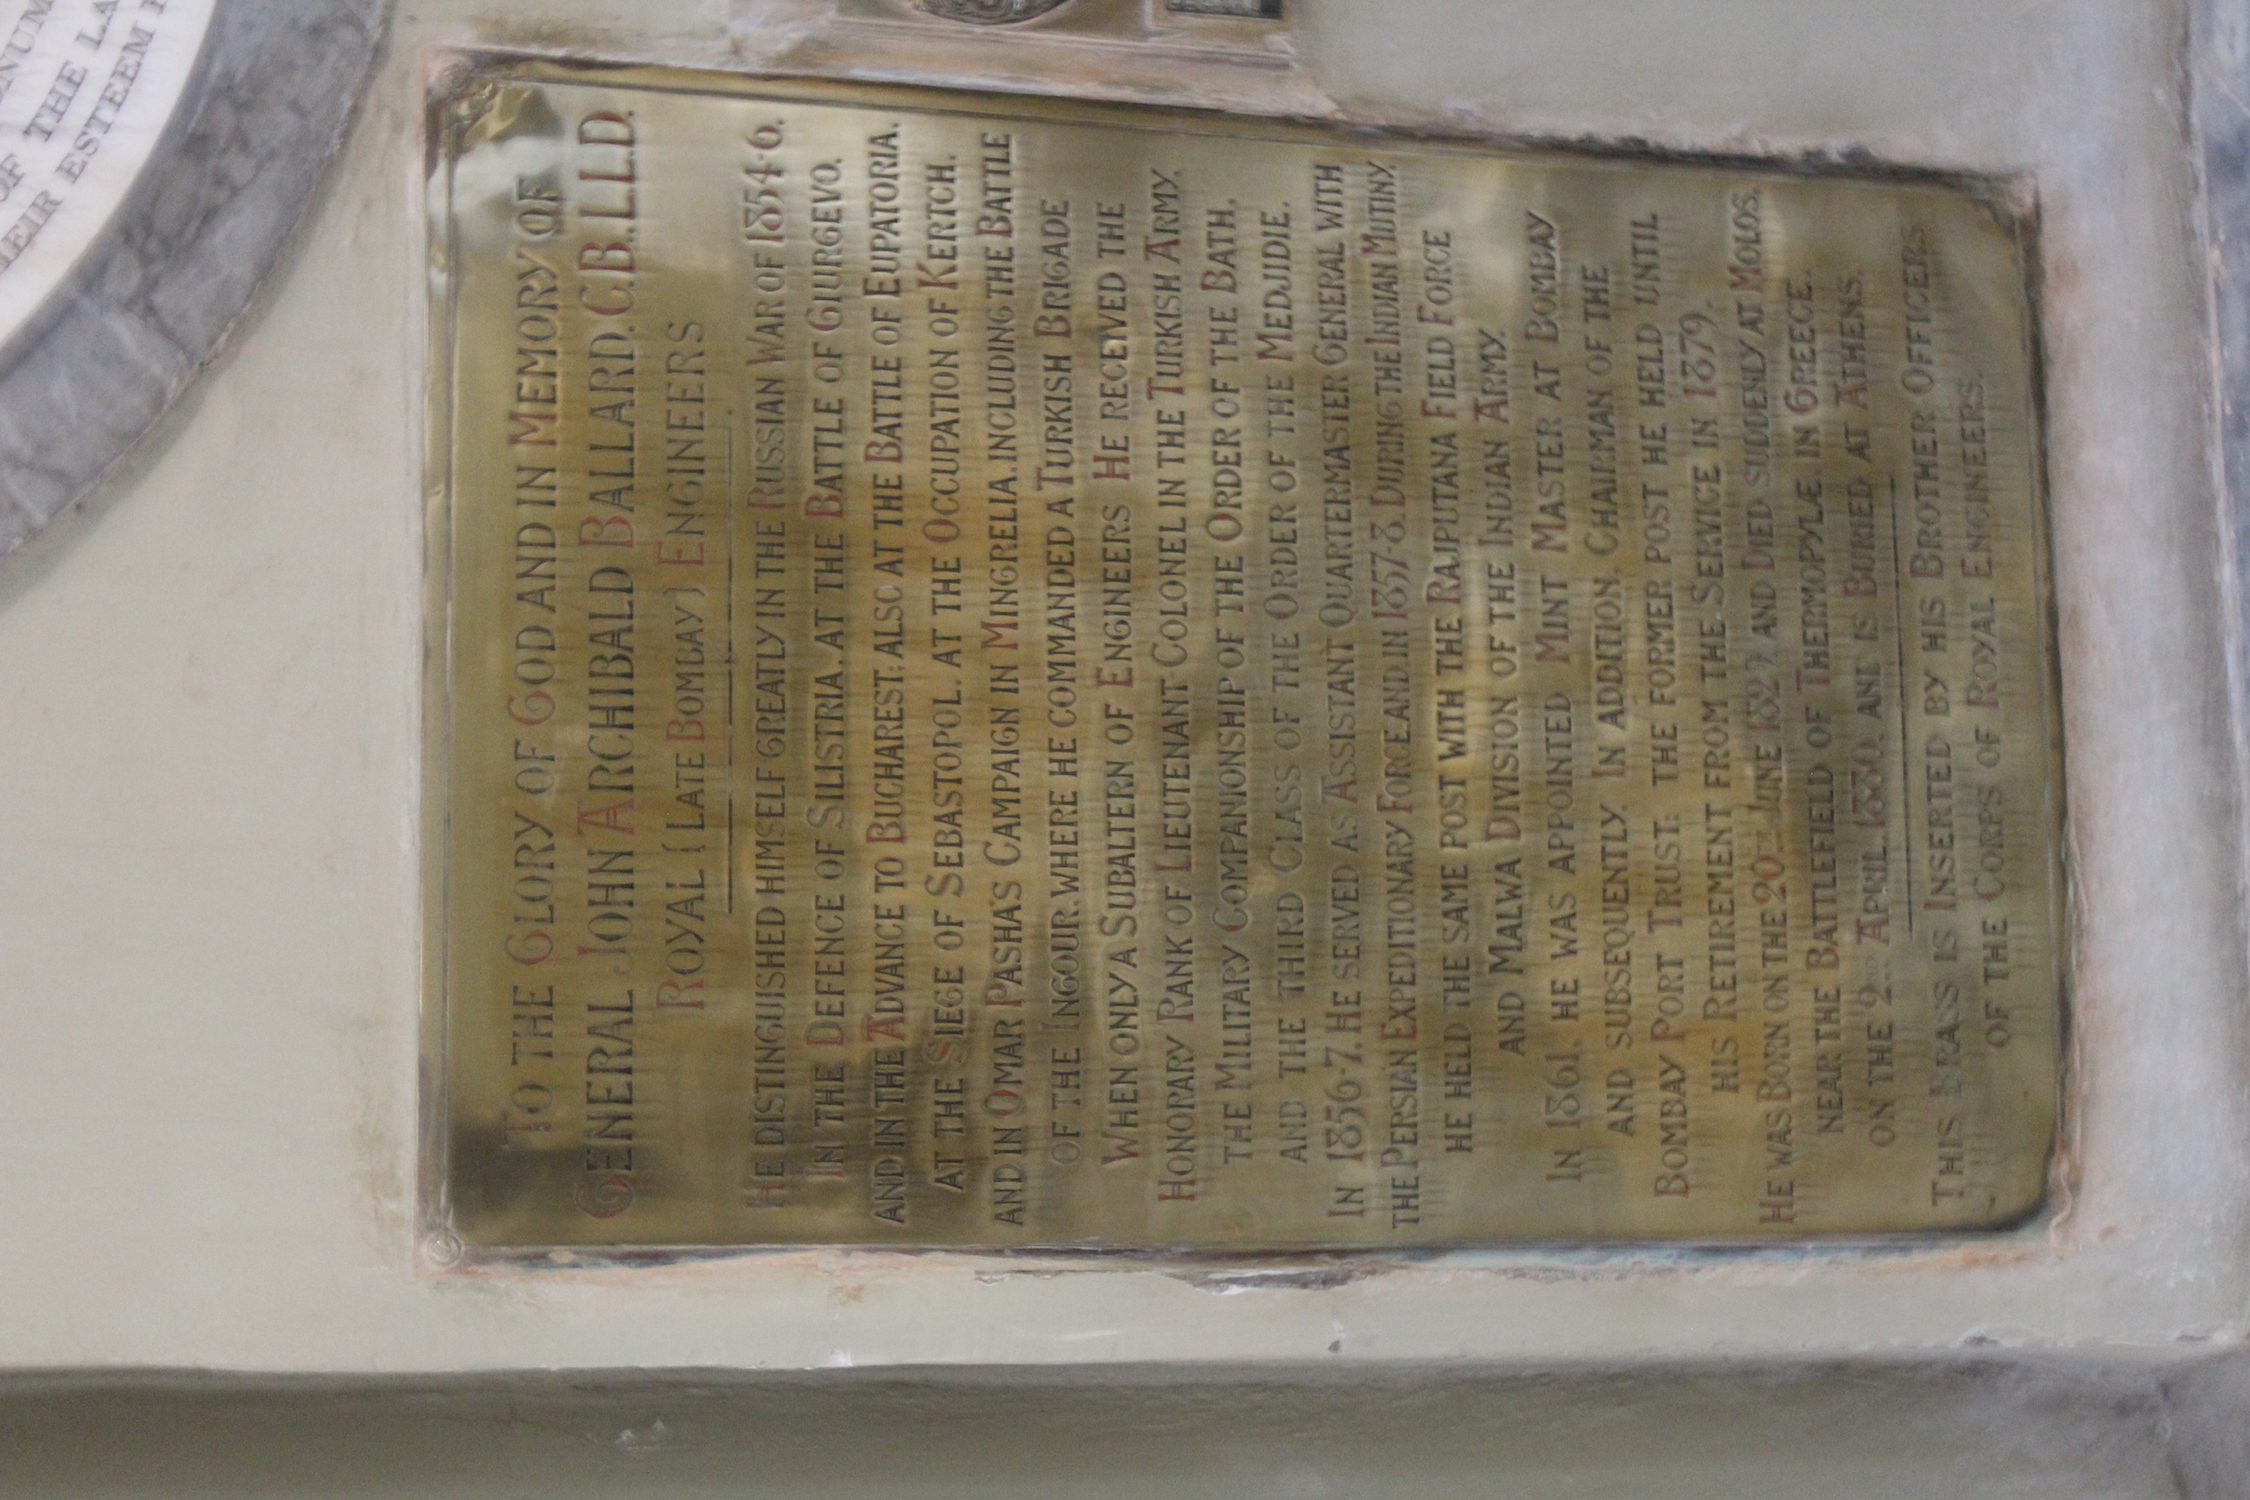 NUM
OF THE LA
HEIR ESTEEM
TO THE GLORY OF GOD AND IN MEMORY OF
GENERAL JOHN ARCHIBALD BALLARD. C.B.,LL.D.
ROYAL [LATE BOMBAY] ENGINEERS
HE DISTINGUISHED HIMSELF GREATLY IN THE RUSSIAN WAR OF 1854-6.
IN THE DEFENCE OF SILISTRIA. AT THE BATTLE OF GIURGEVO.
AND IN THE ADVANCE TO BUCHAREST: ALSO AT THE BATTLE OF EUPATORIA.
AT THE SIEGE OF SEBASTOPOL. AT THE OCCUPATION OF KERTCH.
AND IN OMAR PASHA'S CAMPAIGN IN MINGRELIA. INCLUDING THE BATTLE
OF THE INGOUR. WHERE HE COMMANDED A TURKISH BRIGADE
WHEN ONLY A SUBALTERN OF ENGINEERS HE RECEIVED THE
HONORARY RANK OF LIEUTENANT COLONEL IN THE TURKISH ARMY.
THE MILITARY COMPANIONSHIP OF THE ORDER OF THE BATH.
AND THE THIRD CLASS OF THE ORDER OF THE MEDJIDIE.
IN 1856-7. HE SERVED AS ASSISTANT QUARTERMASTER GENERAL WITH
THE PERSIAN EXPEDITIONARY FORCE. AND. IN 1857-8. DURING THE INDIAN MUTINY.
HE HELD THE SAME POST WITH THE RAJPUTANA FIELD FORCE
AND MALWA DIVISION OF THE INDIAN ARMY.
IN 1861. HE WAS APPOINTED MINT MASTER AT BOMBAY
AND SUBSEQUENTLY. IN ADDITION. CHAIRMAN OF THE
BOMBAY PORT TRUST: THE FORMER POST HE HELD UNTIL
HIS RETIREMENT FROM THE SERVICE IN 1879.
HE WAS BORN ON THE 20TH JUNE 1829, AND DIED SUDDENLY AT MOLOS.
NEAR THE BATTLEFIELD OF THERMOPYLÆ. IN GREECE.
ON THE 2ND APRIL. 1880. AND IS BURIED AT ATHENS.
THIS BRASS IS INSERTED BY HIS BROTHER OFFICERS
OF THE CORPS OF ROYAL ENGINEERS.